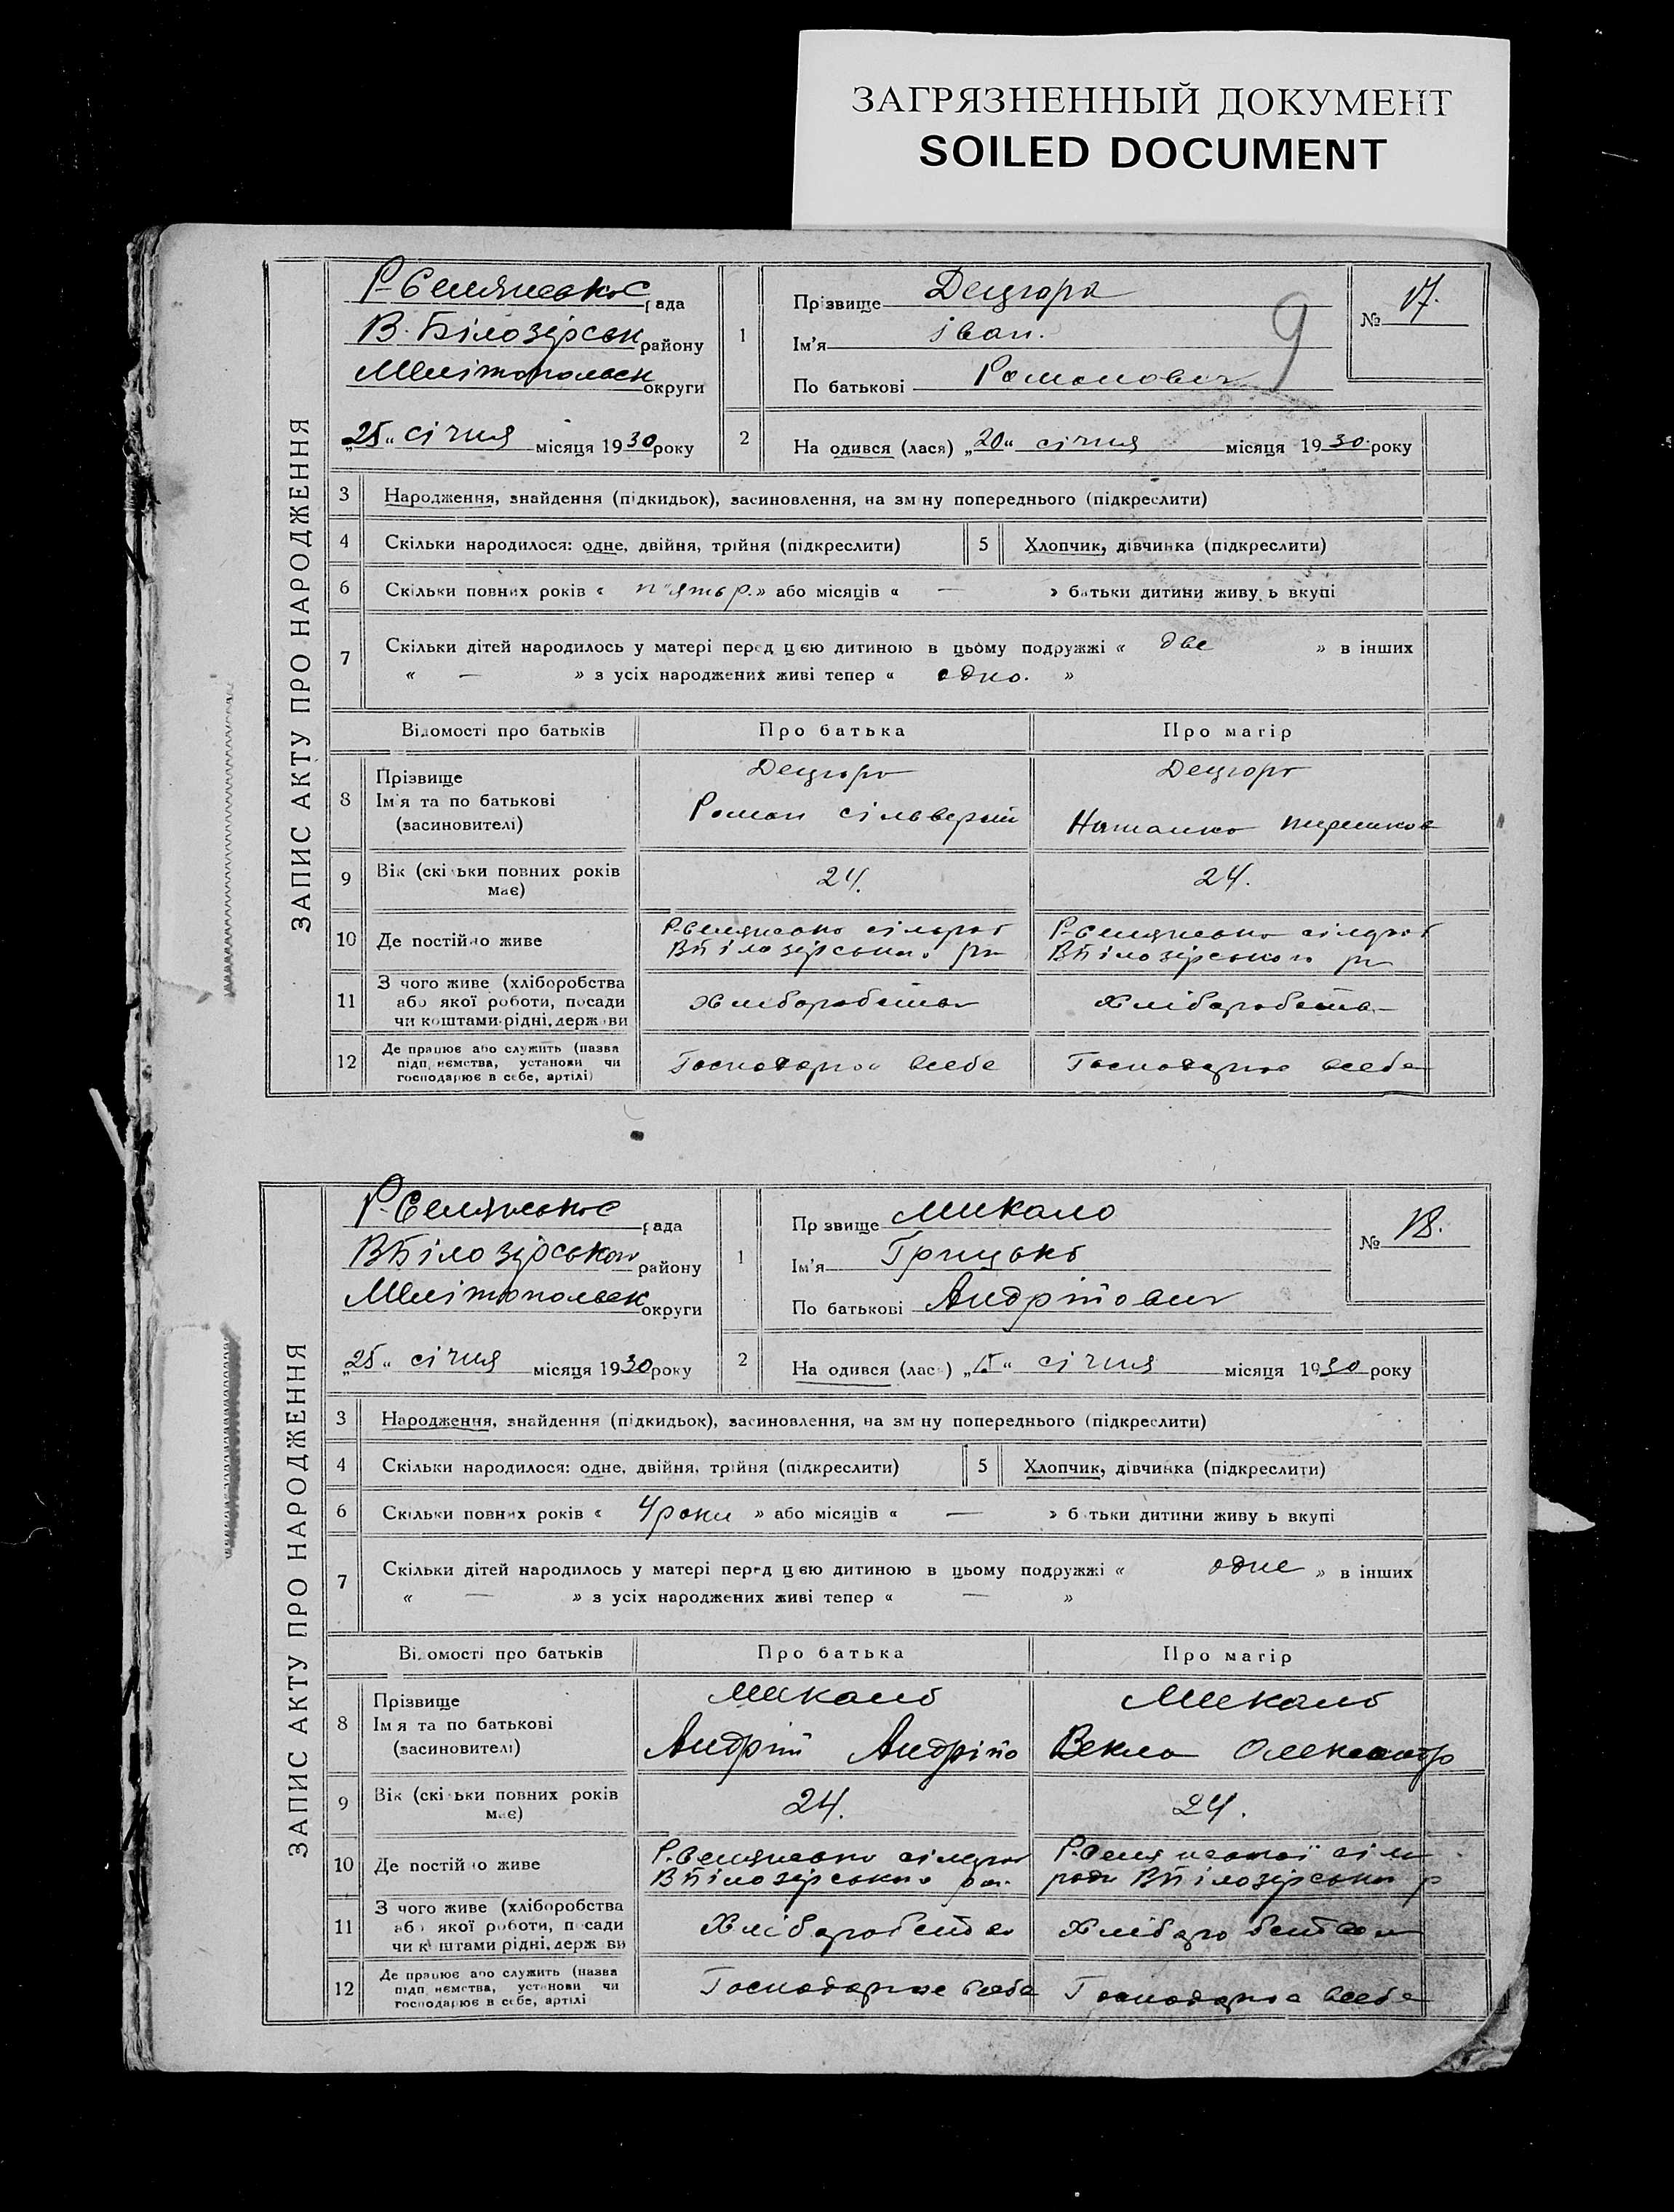 ЗАГРЯЗНЕННЫЙ ДОКУМЕНТ
SOILED DOCUMENT
9
ЗАПИС АКТУ ПРО НАРОДЖЕННЯ
рада
В. Білозірськ району
Мелітопольск округи
„25“ січня місяця 1930 року
1 Прізвище Децюра
Ім'я іван.
По батькові Романович
№ 17.
2 На одився (лася) „20“ січня місяця 1930 року
3 Народження, знайдення (підкидьок), засиновлення, на зм ну попереднього (підкреслити)
4 Скільки народилося: одне, двійня, трійня (підкреслити) 5 Хлопчик, дівчинка (підкреслити)
6 Скільки повних років « п'ять р. » або місяців « — » батьки дитини живу ь вкупі
7 Скільки дітей народилось у матері перед цією дитиною в цьому подружжі « две » в інших
« — » з усіх народжених живі тепер « одно. »
Відомості про батьків Про батька Про матір
8 Прізвище Децюра Децюра
Ім'я та по батькові Роман
(засиновителі)
9 Вік (скі ьки повних років 24. 24.
має)
10 Де постійно живе
11 З чого живе (хліборобства
або якої роботи, посади
чи коштами рідні, держ ви
12 Де працює або служить (назва
підп иємства, установи чи
господарює в себе, артілі) Господарює всебе Господарює всебе
ЗАПИС АКТУ ПРО НАРОДЖЕННЯ
рада
ВБілозірського району
Мелітопольск округи
„25“ січня місяця 1930 року
1 Пр звище Микало
Ім'я Грицько
По батькові Андрійович
№ 18.
2 На одився (лас ) січня місяця 1930 року
3 Народження, знайдення (підкидьок), засиновлення, на зм ну попереднього (підкреслити)
4 Скільки народилося: одне, двійня, трійня (підкреслити) 5 Хлопчик, дівчинка (підкреслити)
6 Скільки повних років « 4 роки » або місяців « — » б тьки дитини живу ь вкупі
7 Скільки дітей народилось у матері перед цією дитиною в цьому подружжі « одне » в інших
« — » з усіх народжених живі тепер « — »
Ві омості про батьків Про батька Про матір
8 Прізвище Микало Микало
Ім я та по батькові Андрій Андрійо Векла Олександр
(засиновителі)
9 Вік (скі ьки повних років 24. 24.
має)
10 Де постійно живе
11 З чого живе (хліборобства
або якої роботи, посади
чи к штами рідні, держ ви
12 Де працює або служить (назва
підп иємства, установи чи
господарює в себе, артілі Господарює всебе Господарює всебе